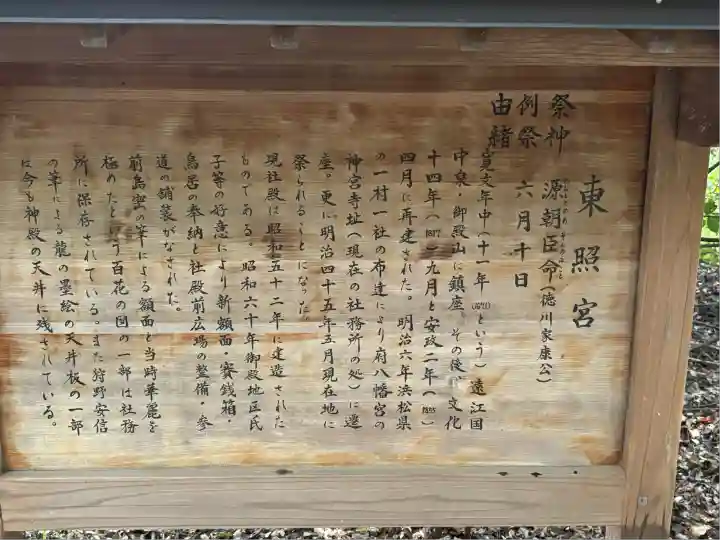 東照宮
祭神 源朝臣命(徳川家康公)
例祭 六月十日
由緒
寛文年中(十一年(1671)という)遠江国
中泉・御殿山に鎮座、その後、文化
十四年(1817)九月と安政二年(1855)
四月に再建された。明治六年浜松県
の一村一社の布達により府八幡宮の
神宮寺址(現在の社務所の処)に遷
座。更に明治四十五年五月現在地に
祭られることになった。
現社殿は昭和五十二年に建造された
ものである。昭和六十年御殿地区氏
子等の好意により新額面・賽銭箱・
鳥居の奉納と社殿前広場の整備・参
道の舗装がなされた。
前島密の筆による額面と当時華麗を
極めたという百花の図の一部は社務
所に保存されている。また狩野安信
の筆による龍の墨絵の天井板の一部
は今も神殿の天井に残されている。